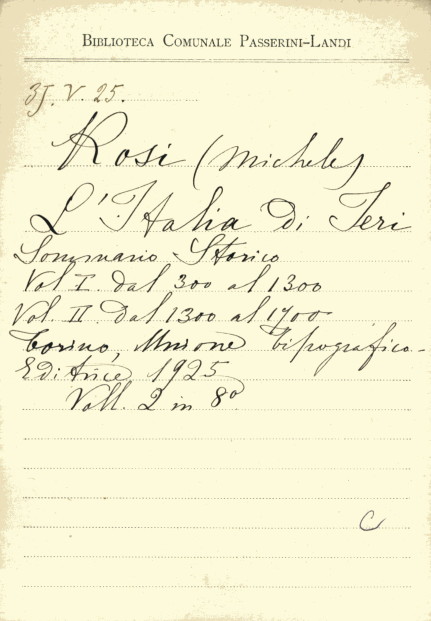 BIBLIOTECA COMUNALE PASSERINI-LANDI
35. V. 25.
Rosi (Michele)
L'Italia di Ieri
Sommario Storico
Vol I. dal 300 al 1300
Vol. II dal 1300 al 1700
Torino, Unione tipografico-
Editrice 1925
Voll. 2 in 8º
C